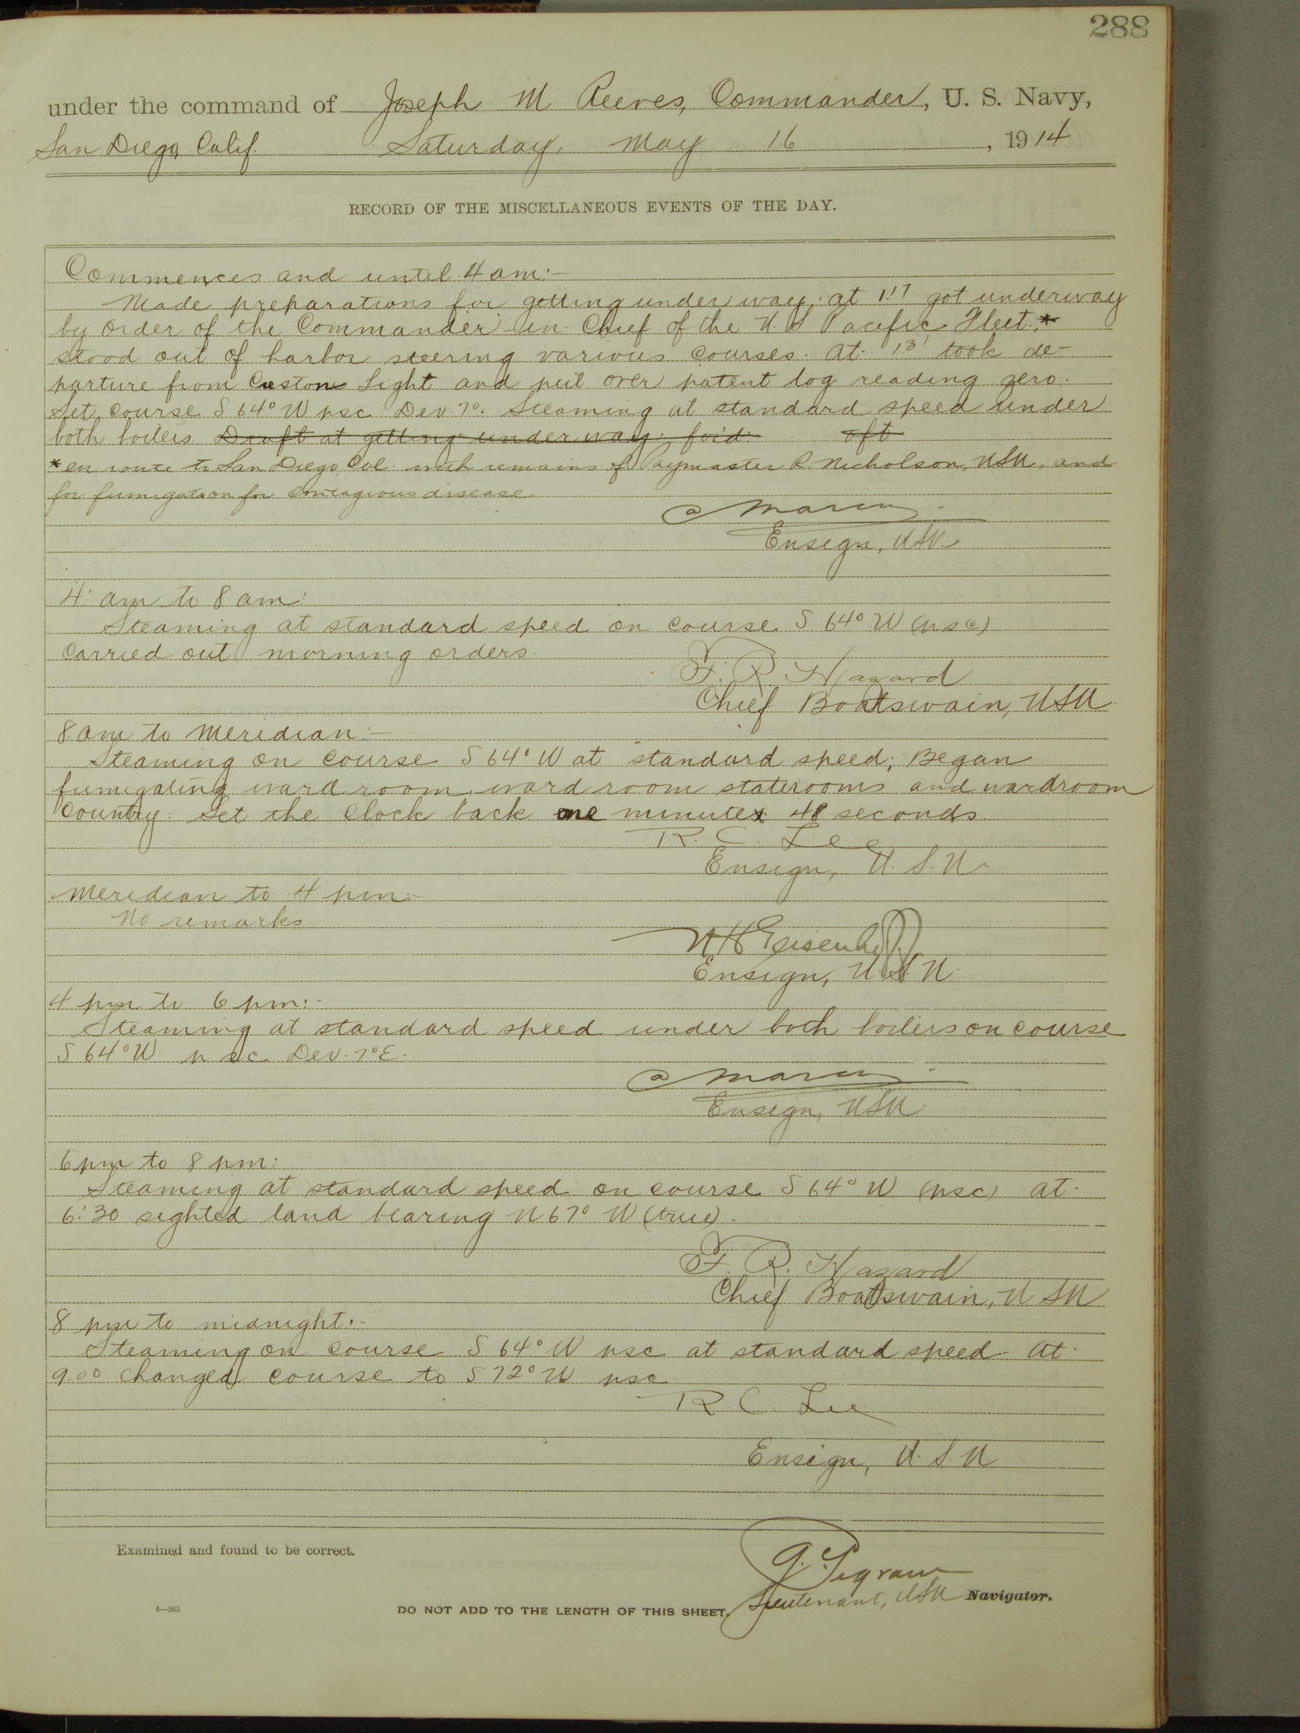 288
under the command of Joseph M Reeves, Commander, U. S. Navy,
San Diego, Calif. Saturday, May 16, 1914
RECORD OF THE MISCELLANEOUS EVENTS OF THE DAY.
Commences and until 4 am:-
Made preparations for getting under way; at 1:17 got underway
by order of the Commander in Chief of the U S Pacific Fleet;*
stood out of harbor steering various courses. At took de-
parture from Light and put over patent log reading zero.
Set course S 64° W psc Dev 7°. Steaming at standard speed under
both boilers Draft at getting under way: for'd. aft
*en route to San Diego Cal. with remains of Paymaster R. Nicholson, USN, and
for fumigation for contagious disease
Ensign, USN
4: am to 8 am:
Steaming at standard speed on course S 64° W (psc)
Carried out morning orders.
F. R. Hazard
Chief Boatswain, USN
8 am to Meridian:-
Steaming on course S 64° W at standard speed; Began
fumigating ward room, ward room staterooms and wardroom
Country. Set the clock back one minute 48 seconds.
R. C. Lee
Ensign, U. S. N.
Meridian to 4 pm:-
No remarks
Ensign, U. S. N.
4 pm to 6 pm:-
Steaming at standard speed under both boilers on course
S 64° W p s c Dev. 7° E.
Ensign, USN
6 pm to 8 pm:
Steaming at standard speed on course S 64° W (psc) at
6:30 sighted land bearing N 67° W (true).
F. R. Hazard
Chief Boatswain, U S N
8 pm to midnight:-
Steaming on course S 64° W psc at standard speed. At
9:00 changed course to S 72° W psc
R C. Lee
Ensign, U. S. N
Examined and found to be correct.
G. Pegram
Lieutenant, USN Navigator.
4—265
DO NOT ADD TO THE LENGTH OF THIS SHEET.